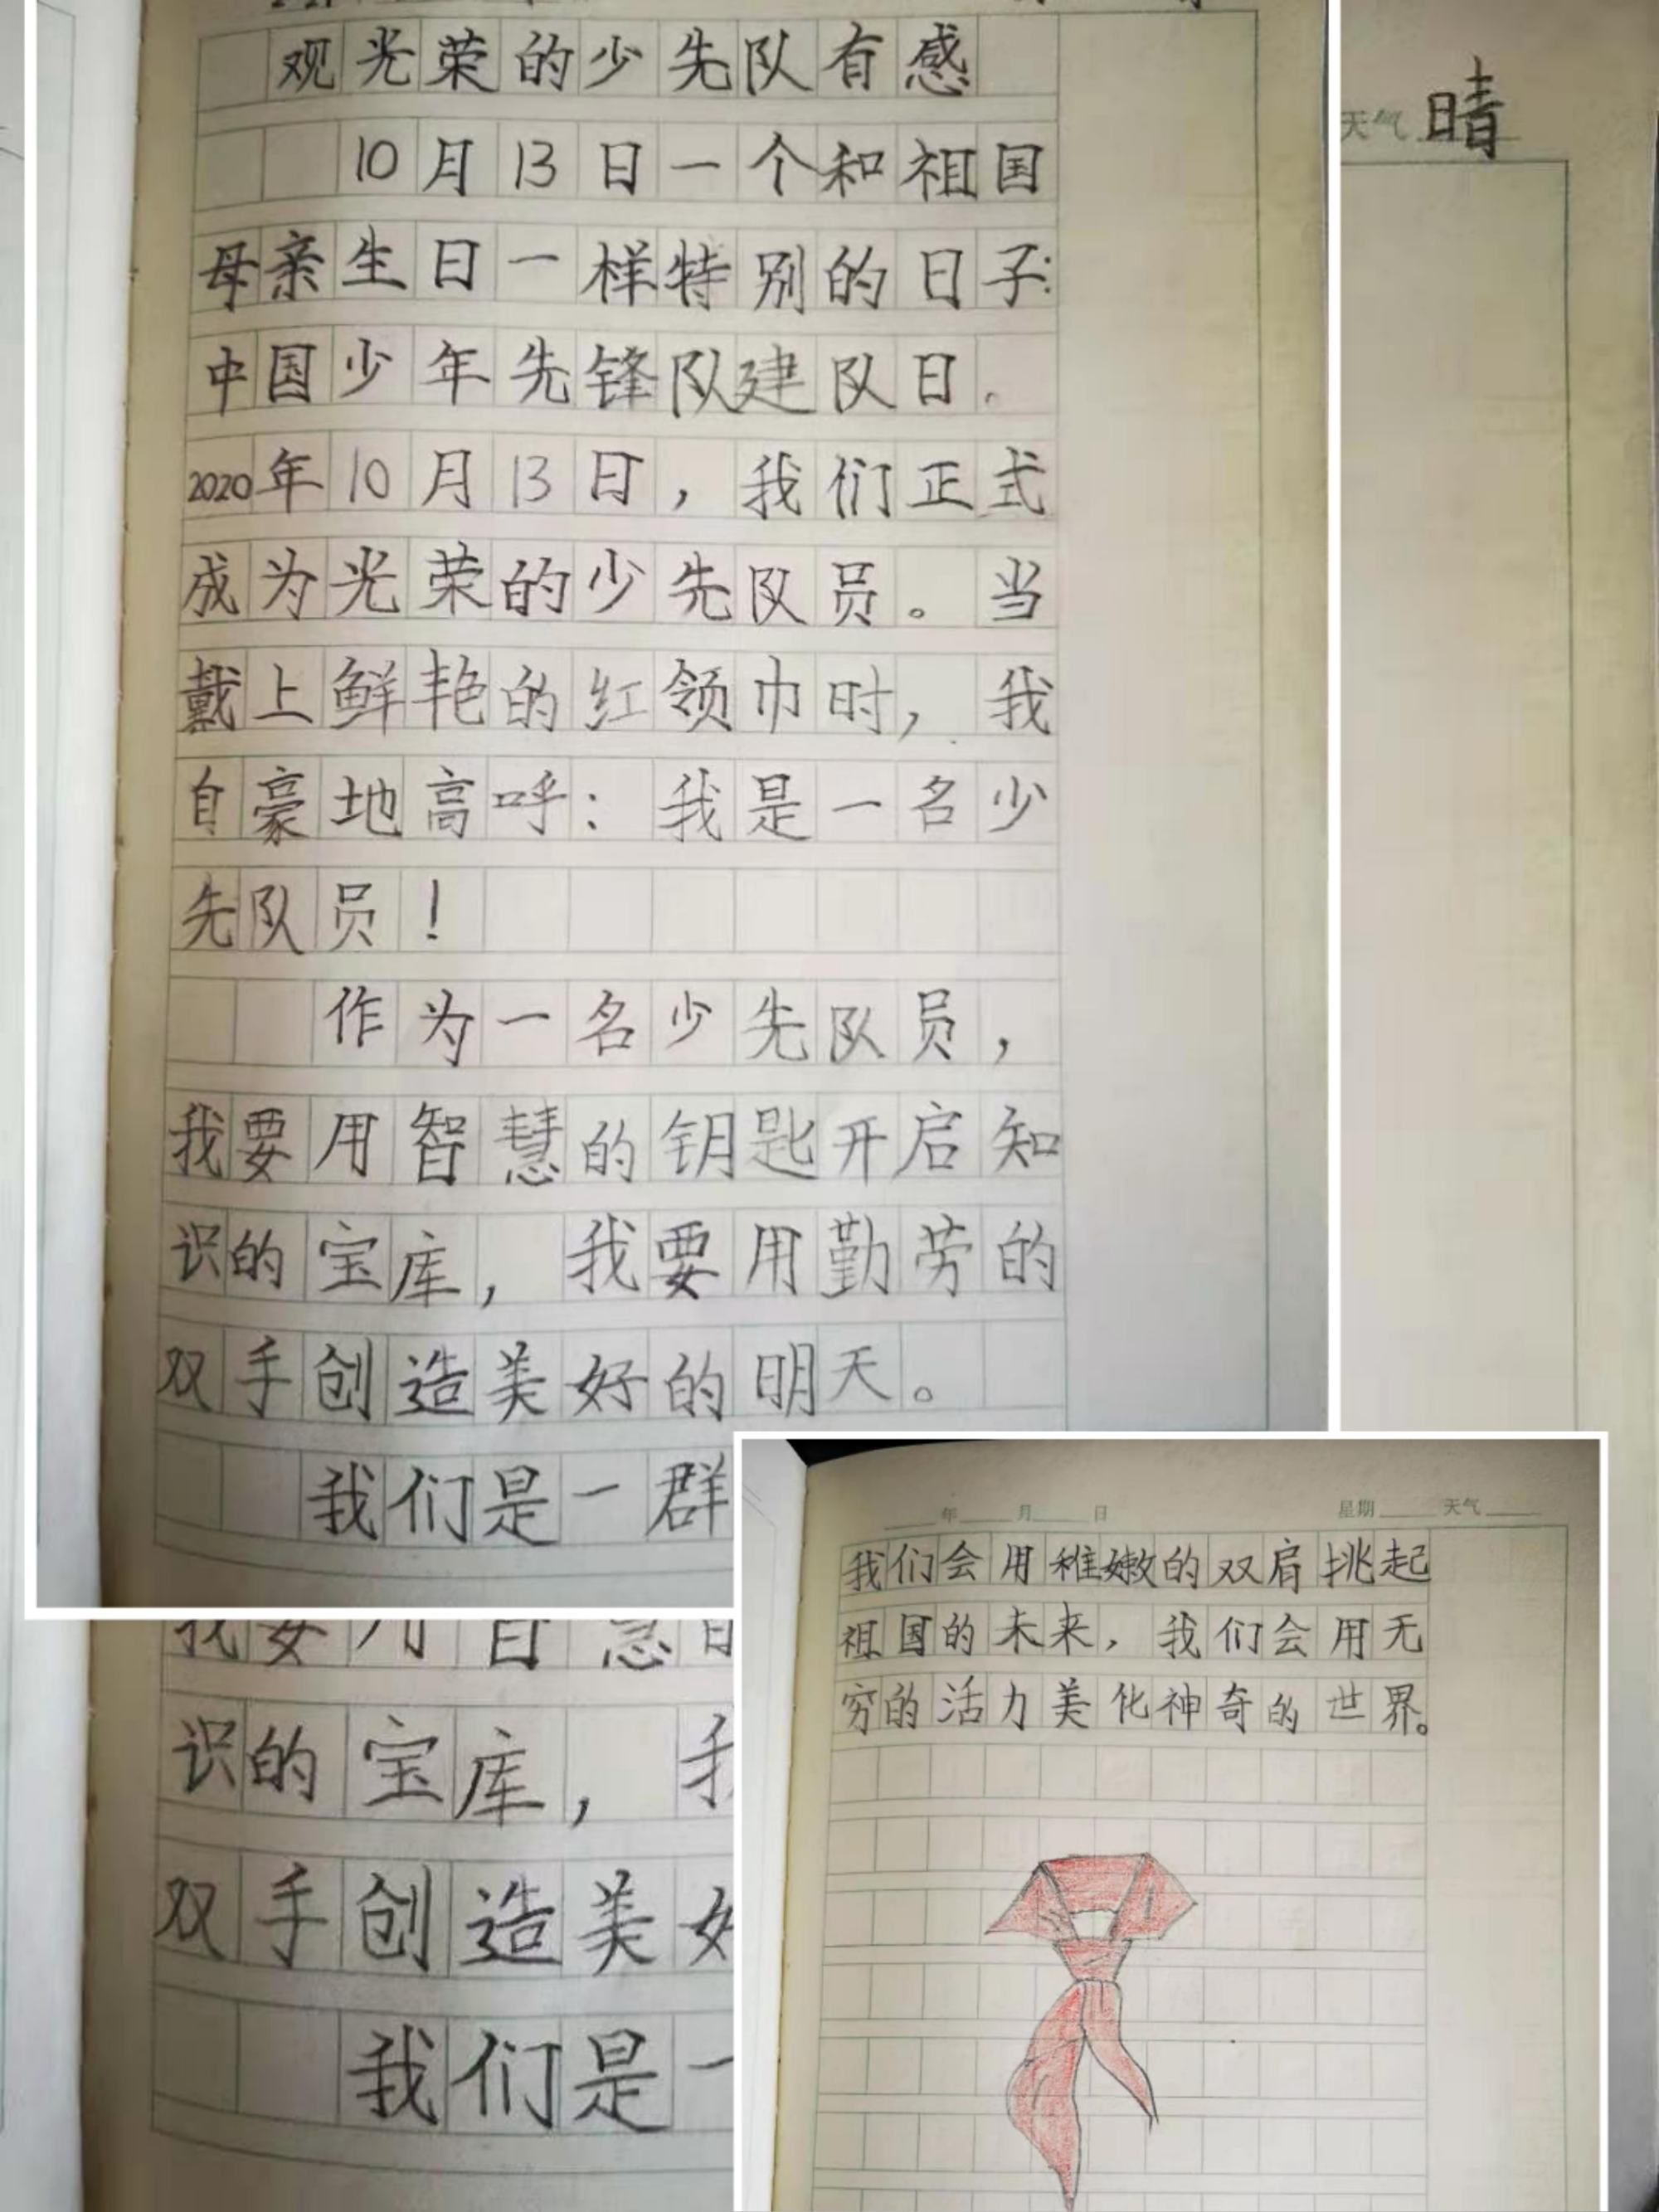 观光荣的少先队有感
10月13日一个和祖国
母亲生日一样特别的日子:
中国少年先锋队建队日。
2020年10月13日，我们正式
成为光荣的少先队员。当
戴上鲜艳的红领巾时，我
自豪地高呼：我是一名少
先队员！
作为一名少先队员，
我要用智慧的钥匙开启知
识的宝库，我要用勤劳的
双手创造美好的明天。
我们是一群
天气 晴
我要用智慧的
识的宝库，我
双手创造美好
我们是一
年 月 日 星期 天气
我们会用稚嫩的双肩挑起
祖国的未来，我们会用无
穷的活力美化神奇的世界。